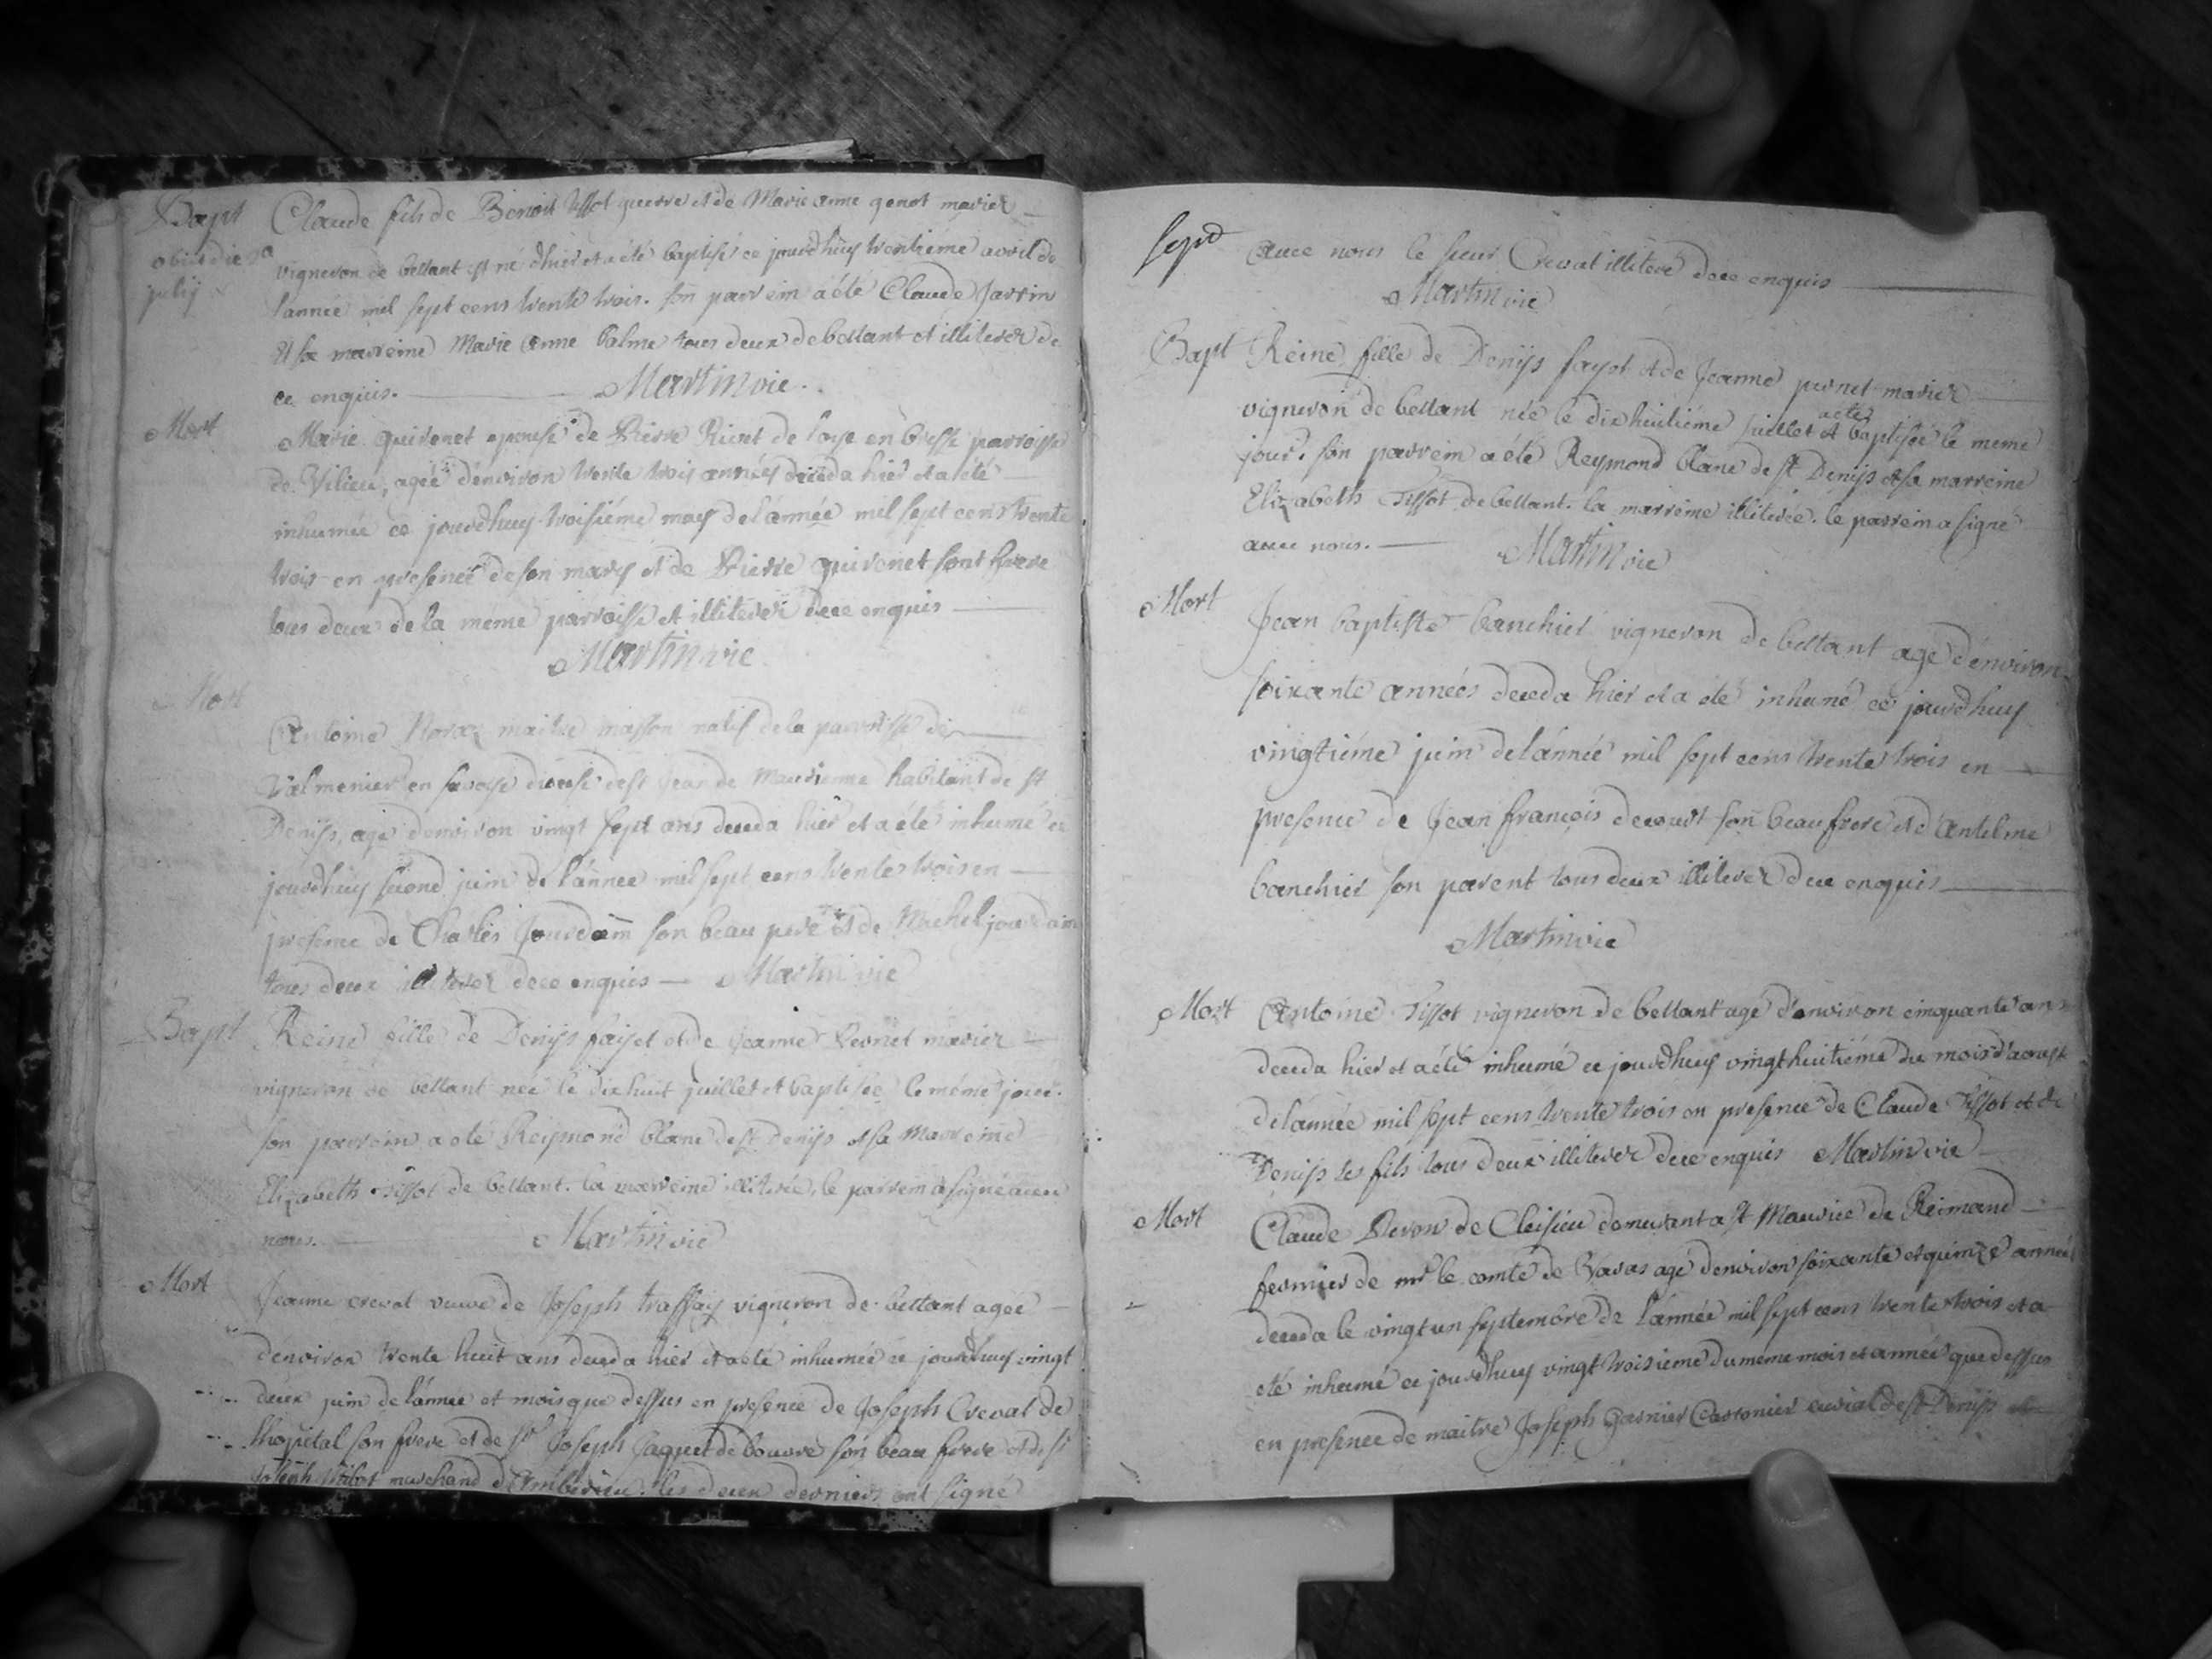 Bapt Claude fils de Benoit Tissot guerre et de Marie anne genot mariez
obiit die 2a vigneron de bettant est né dhier et a été baptisé ce jourdhuy trentiéme avril de
julij l'année mil sept cens trente trois. son parrein a été Claude Jarrin
Et sa marreine Marie Anne Palme tous deux de bettant et illiterez de
ce enquis. Martin vic.
Mort Marie quivonet epouse de Pierre Ricet de loye en bresse parroisse
de Vilieu, agée d'environ trente trois années deceda hier et a été
inhumée ce jourdhuy troisiéme may de l'année mil sept cens trente
trois en presence de son mary et de Pierre quivonet sont frere
tous deux de la meme parroisse et illiterez de ce enquis
Martin vic
Mort
Antoine maitre masson natif de la parroisse de
Valmenier en savoye diocese de st Jean de Maurienne habitant de st
Denijs, agé denviron vingt sept ans deceda hier et a été inhumé ce
jourdhuy second juin de l'année mil sept cens trente trois en
presence de Charles Jourdain son beau pere et de Michel jourdain
tous deux illiterez de ce enquis Martin vic
Bapt Reine fille de Denijs fayet et de Jeanne Pernet mariez
vigneron de bettant née le dix huit juillet et baptisée le méme jour.
son parrein a été Reymond Blanc de st Denijs et sa Marreine
Elizabeth Tissot de bettant. la marreine illiterée, le parrein a signé avec
nous. Martin vic
Mort Jeanne crevat veuve de Joseph traffay vigneron de bettant agée
d'environ trente huit ans deceda hier et a été inhumée ce jourdhuy vingt
deux juin de l'année et mois que dessus en presence de Joseph Crevat de
lhopital son frere et de sr Joseph Jaquet de louvre son beau frere et de sr
Joseph marchand d'Amberieu. les deux derniers ont signé
sepd avec nous le sieur Crevat illiteré de ce enquis
Martin vic
Bapt Reine fille de Denijs fayet et de Jeanne pernet mariez
vigneron de bettant née le dix huitiéme juillet et a été baptisée le meme
jour. son parrein a été Reymond Blanc de st Denijs et sa marreine
Elizabeth Tissot de bettant. la marreine illiterée. le parrein a signé
avec nous. Martin vic
Mort Jean baptiste banchier vigneron de bettant agé d'environ
soixante années deceda hier et a été inhumé ce jourdhuy
vingtiéme juin de l'année mil sept cens trente trois en
presence de Jean françois decourt son beau frere et d'Antelme
banchier son parent tous deux illiterez de ce enquis
Martin vic
Mort Antoine Tissot vigneron de bettant agé d'environ cinquante ans
deceda hier et a été inhumé ce jourdhuy vingt huitiéme du mois d'aoust
de l'année mil sept cens trente trois en presence de Claude Tissot et de
Denijs ses fils tous deux illiterez de ce enquis Martin vic
Mort Claude Peron de Cleisieu demeurant a st Maurice de Reimand
fermier de mr le comte de Varas agé denviron soixante et quinze années
deceda le vingt un septembre de l'année mil sept cens trente trois et a
été inhumé ce jourdhuy vingt troisieme du meme mois et année que dessus
en presence de maitre Joseph Garnier curial de st Denijs et